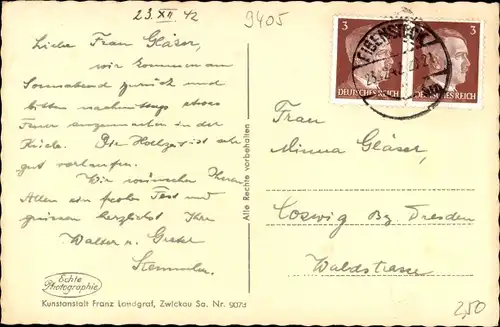 23. XII 42
9405
Liebe Frau Gläser,
wir kommen am
Sonnabend zurück und
bitten nachmittags etwas
Feuer anzumachen in der
Küche. Die Hochzeit ist sehr
gut verlaufen.
Wir wünschen Ihnen
Allen ein frohes Fest und
grüssen herzlichst Ihre
Walter u. Grete
Echte
Photographie
Kunstanstalt Franz Landgraf, Zwickau Sa. Nr. 9073
Alle Rechte vorbehalten
3
DEUTSCHES REICH
3
DEUTSCHES REICH
EIBENSTOCK
Frau
Minna Gläser,
Coswig Bz. Dresden
Waldstrasse
2,50